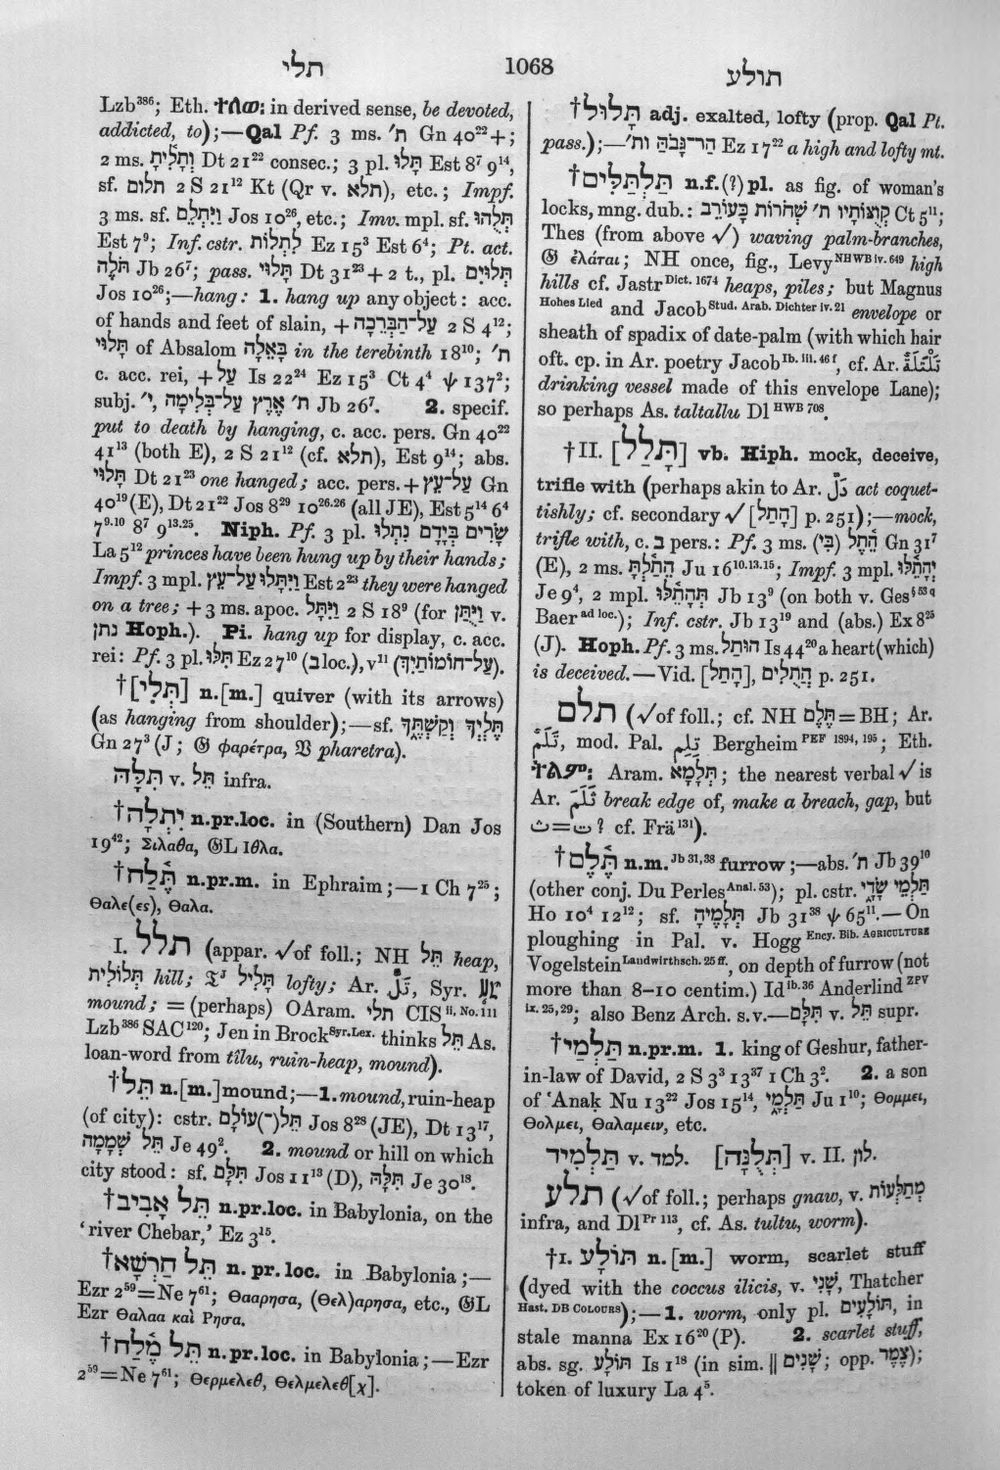 תלי
1068
תולע
Lzb³⁸⁶; Eth. ተለወ፡ in derived sense, be devoted,
addicted, to);—Qal Pf. 3 ms. ת׳ Gn 40²²+;
2 ms. וְתָלִיתָ Dt 21²² consec.; 3 pl. תָּלוּ Est 8⁷ 9¹⁴,
sf. תלום 2 S 21¹² Kt (Qr v. תלא), etc.; Impf.
3 ms. sf. וַיִּתְלֵם Jos 10²⁶, etc.; Imv. mpl. sf. תְּלֻהוּ
Est 7⁹; Inf. cstr. לִתְלוֹת Ez 15³ Est 6⁴; Pt. act.
תֹּלֶה Jb 26⁷; pass. תָּלוּי Dt 31²³+2 t., pl. תְּלוּיִם
Jos 10²⁶;—hang: 1. hang up any object: acc.
of hands and feet of slain, + עַל־הַבְּרֵכָה 2 S 4¹²;
תָּלוּי of Absalom בָּאֵלָה in the terebinth 18¹⁰; ת׳
c. acc. rei, + עַל Is 22²⁴ Ez 15³ Ct 4⁴ ψ 137²;
subj. י׳, ת׳ אֶרֶץ עַל־בְּלִימָה Jb 26⁷. 2. specif.
put to death by hanging, c. acc. pers. Gn 40²²
41¹³ (both E), 2 S 21¹² (cf. תלא), Est 9¹⁴; abs.
תָּלוּי Dt 21²³ one hanged; acc. pers. + עַל־עֵץ Gn
40¹⁹ (E), Dt 21²² Jos 8²⁹ 10²⁶·²⁶ (all JE), Est 5¹⁴ 6⁴
7⁹·¹⁰ 8⁷ 9¹³·²⁵. Niph. Pf. 3 pl. שָׂרִים בְּיָדָם נִתְלוּ
La 5¹² princes have been hung up by their hands;
Impf. 3 mpl. וַיִּתָּלוּ עַל־עֵץ Est 2²³ they were hanged
on a tree; + 3 ms. apoc. וַיִּתָּל 2 S 18⁹ (for וַיֻּתַּן v.
נתן Hoph.). Pi. hang up for display, c. acc.
rei: Pf. 3 pl. תִּלּוּ Ez 27¹⁰ (ב loc.), v¹¹ (עַל־חוֹמוֹתַיִךְ).
†[תְּלִי] n.[m.] quiver (with its arrows)
(as hanging from shoulder);—sf. תֶּלְיְךָ וְקַשְׁתֶּךָ
Gn 27³ (J; 𝔊 φαρέτρα, 𝔙 pharetra).
תִּלָּה v. תֵּל infra.
†יִתְלָה n.pr.loc. in (Southern) Dan Jos
19⁴²; Σιλαθα, 𝔊L Ιθλα.
†תֶּלַח n.pr.m. in Ephraim;—1 Ch 7²⁵;
Θαλε(ες), Θαλα.
I. תלל (appar. √ of foll.; NH תֵּל heap,
תְּלוּלִית hill; 𝔗ᴶ תָּלִיל lofty; Ar. تَلٌّ, Syr. ܬܠ
mound; = (perhaps) OAram. תלי CISⁱⁱ· ᴺᵒ· ¹¹¹
Lzb³⁸⁶ SAC¹²⁰; Jen in Brock Syr. Lex. thinks תֵּל As.
loan-word from tîlu, ruin-heap, mound).
†תֵּל n.[m.] mound;—1. mound, ruin-heap
(of city): cstr. תֵּל(־)עוֹלָם Jos 8²⁸ (JE), Dt 13¹⁷,
תֵּל שְׁמָמָה Je 49². 2. mound or hill on which
city stood: sf. תִּלָּם Jos 11¹³ (D), תִּלָּהּ Je 30¹⁸.
†תֵּל אָבִיב n.pr.loc. in Babylonia, on the
‘river Chebar,’ Ez 3¹⁵.
†תֵּל חַרְשָׁא n.pr.loc. in Babylonia;—
Ezr 2⁵⁹=Ne 7⁶¹; Θααρησα, (Θελ)αρησα, etc., 𝔊L
Ezr Θαλαα καὶ Ρησα.
†תֵּל מֶלַח n.pr.loc. in Babylonia;—Ezr
2⁵⁹=Ne 7⁶¹; Θερμελεθ, Θελμελεθ[χ].
†תָּלוּל adj. exalted, lofty (prop. Qal Pt.
pass.);—הַר־גָּבֹהַּ וְת׳ Ez 17²² a high and lofty mt.
†תַּלְתַּלִּים n.f.(?) pl. as fig. of woman's
locks, mng. dub.: קְוֻצּוֹתָיו ת׳ שְׁחֹרוֹת כָּעוֹרֵב Ct 5¹¹;
Thes (from above √) waving palm-branches,
𝔊 ἐλάται; NH once, fig., Levy NHWB iv. 649 high
hills cf. Jastr Dict. 1674 heaps, piles; but Magnus
Hohes Lied and Jacob Stud. Arab. Dichter iv. 21 envelope or
sheath of spadix of date-palm (with which hair
oft. cp. in Ar. poetry Jacob Ib. iii. 46 f, cf. Ar. تَلْتَلَةٌ
drinking vessel made of this envelope Lane);
so perhaps As. taltallu Dl HWB 708.
†II. [תָּלַל] vb. Hiph. mock, deceive,
trifle with (perhaps akin to Ar. دَلَّ act coquet-
tishly; cf. secondary √ [הָתַל] p. 251);—mock,
trifle with, c. ב pers.: Pf. 3 ms. הֵתֶל (בִּי) Gn 31⁷
(E), 2 ms. הֵתַלְתָּ Ju 16¹⁰·¹³·¹⁵; Impf. 3 mpl. יְהָתֵלּוּ
Je 9⁴, 2 mpl. תְּהָתֵלּוּ Jb 13⁹ (on both v. Ges§ 53 q
Baer ad loc.); Inf. cstr. Jb 13¹⁹ and (abs.) Ex 8²⁵
(J). Hoph. Pf. 3 ms. הוּתַל Is 44²⁰ a heart (which)
is deceived.—Vid. [הָתַל], הֲתֻלִים p. 251.
תלם (√ of foll.; cf. NH תֶּלֶם=BH; Ar.
تَلَمٌ, mod. Pal. تِلِم Bergheim PEF 1894, 195; Eth.
ትለም፡ Aram. תְּלָמָא; the nearest verbal √ is
Ar. ثَلَمَ break edge of, make a breach, gap, but
ت=ث? cf. Frä¹³¹).
†תֶּלֶם n.m. Jb 31, 38 furrow;—abs. ת׳ Jb 39¹⁰
(other conj. Du Perles Anal. 53); pl. cstr. תַּלְמֵי שָׂדָי
Ho 10⁴ 12¹²; sf. תְּלָמֶיהָ Jb 31³⁸ ψ 65¹¹.—On
ploughing in Pal. v. Hogg Ency. Bib. AGRICULTURE
Vogelstein Landwirthsch. 25 ff., on depth of furrow (not
more than 8–10 centim.) Id ib. 36 Anderlind ZPV
ix. 25, 29; also Benz Arch. s.v.—תִּלָּם v. תֵּל supr.
†תַּלְמַי n.pr.m. 1. king of Geshur, father-
in-law of David, 2 S 3³ 13³⁷ 1 Ch 3². 2. a son
of ʿAnaḳ Nu 13²² Jos 15¹⁴, תַּלְמָי Ju 1¹⁰; Θομμει,
Θολμει, Θαλαμειν, etc.
תַּלְמִיד v. למד. [תְּלֻנָּה] v. II. לון.
תלע (√ of foll.; perhaps gnaw, v. מְתַלְּעוֹת
infra, and Dl Pr 113, cf. As. tultu, worm).
†I. תּוֹלָע n.[m.] worm, scarlet stuff
(dyed with the coccus ilicis, v. שָׁנִי, Thatcher
Hast. DB COLOURS);—1. worm, only pl. תּוֹלָעִים, in
stale manna Ex 16²⁰ (P). 2. scarlet stuff,
abs. sg. תּוֹלָע Is 1¹⁸ (in sim. ‖ שָׁנִים; opp. צֶמֶר);
token of luxury La 4⁵.